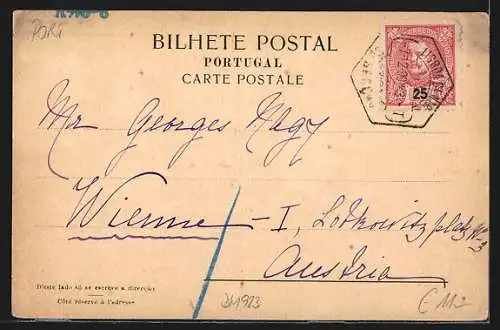 PORT
BILHETE POSTAL
PORTUGAL
CARTE POSTALE
25
Mr Georges Nagy
Wienne - I, Lobkowitzplatz No 3
Austria
D'este lado só se escreve a direcção
Côté réservé à l'adresse